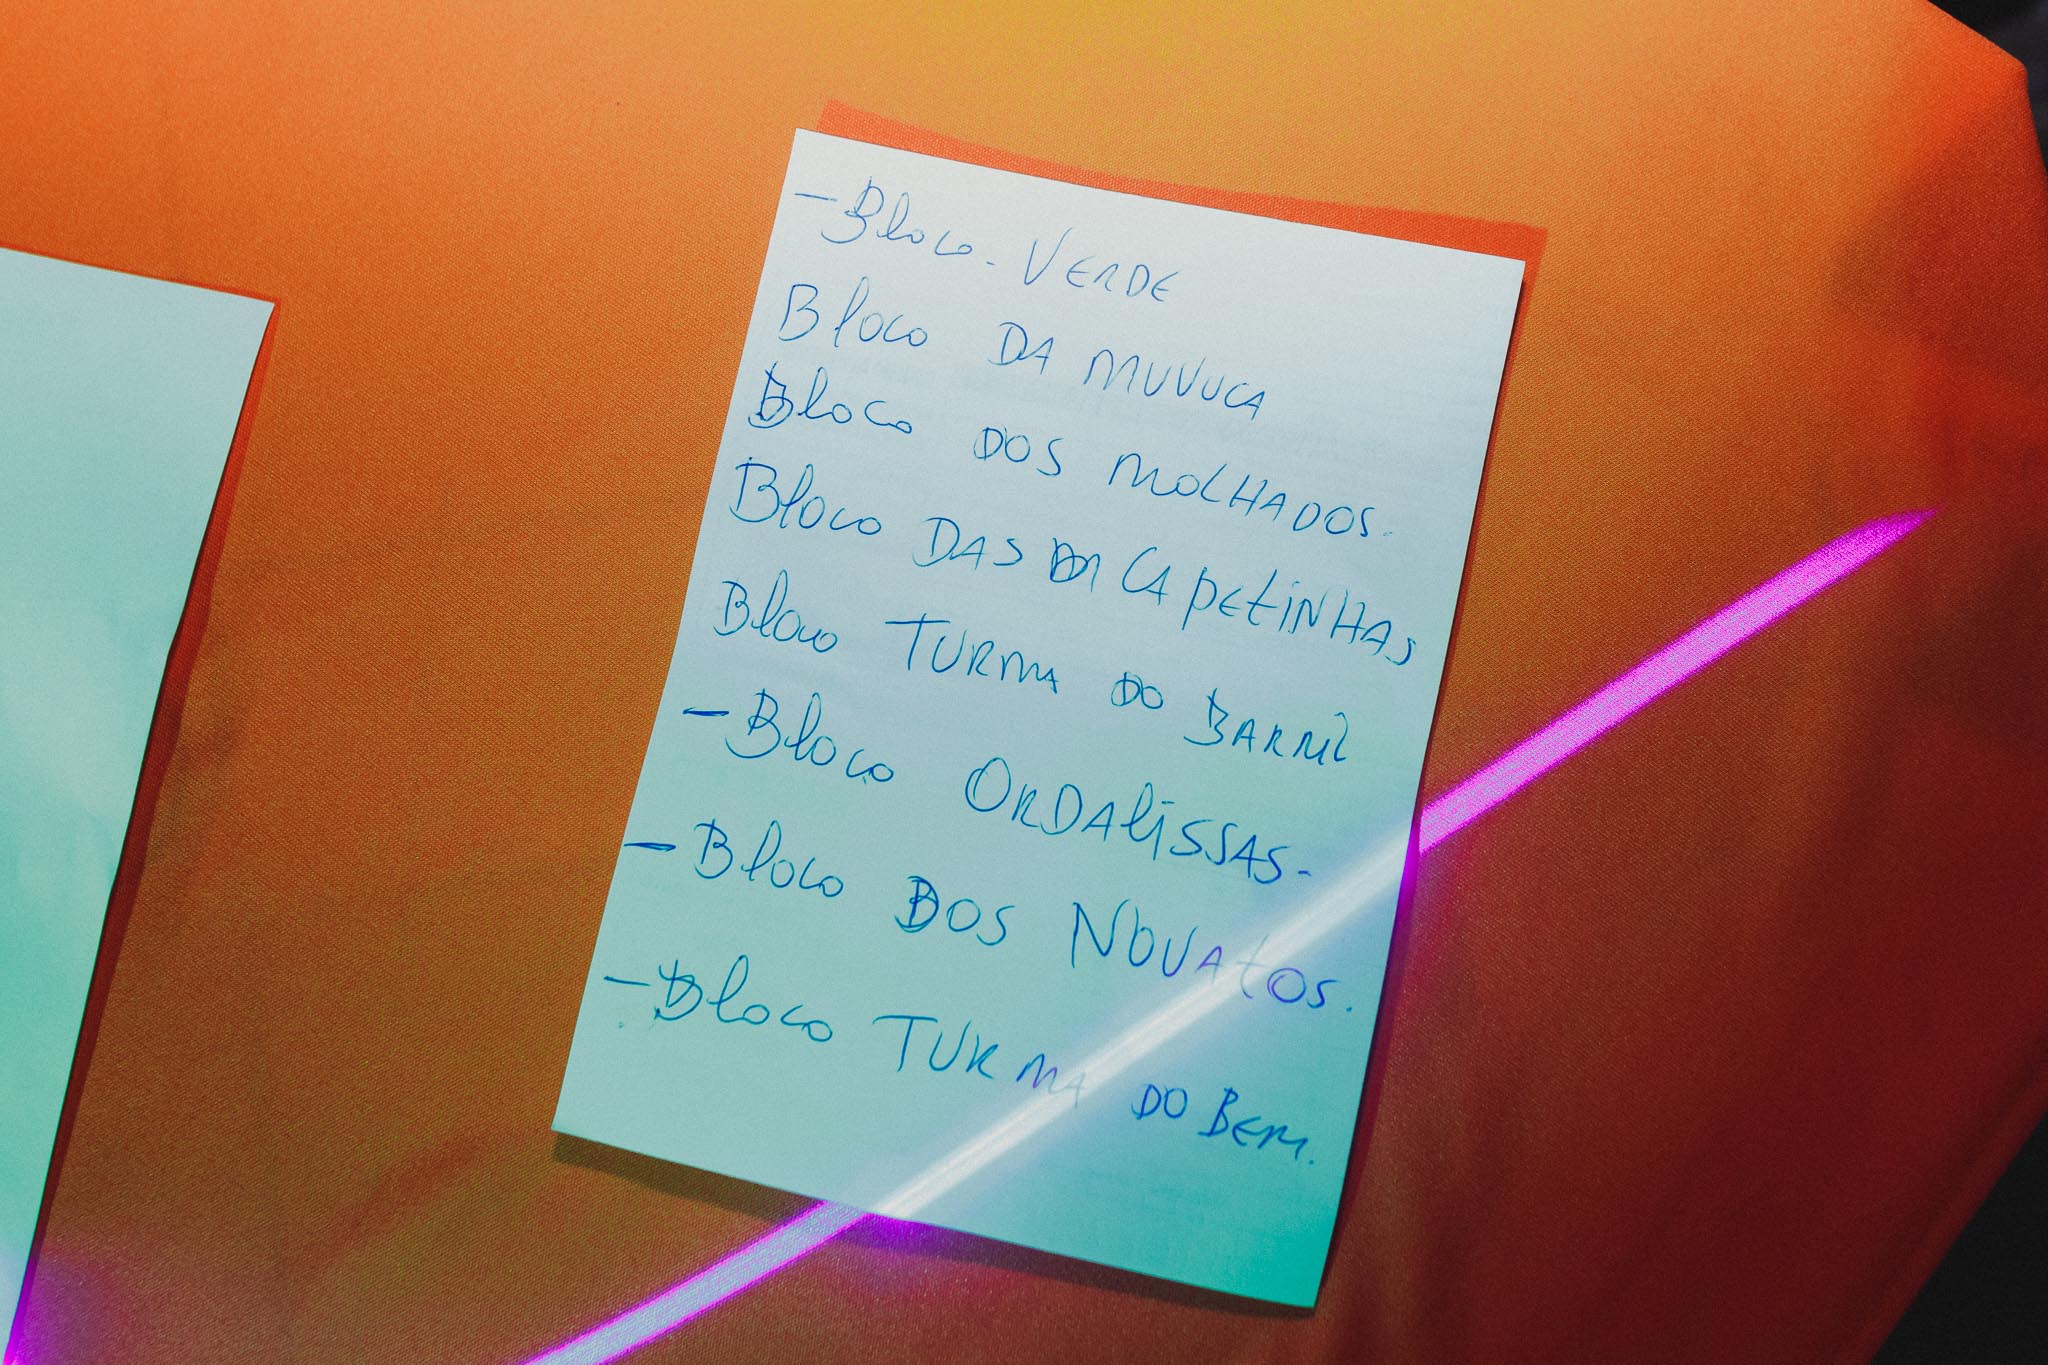 - Bloco - VERDE
Bloco DA MUVUCA
Bloco DOS MOLHADOS.
Bloco DAS CAPETINHAS
Bloco TURMA DO BARRIL
- Bloco ORDALISSAS.
- Bloco DOS NOVATOS.
- Bloco TURMA DO BEM.